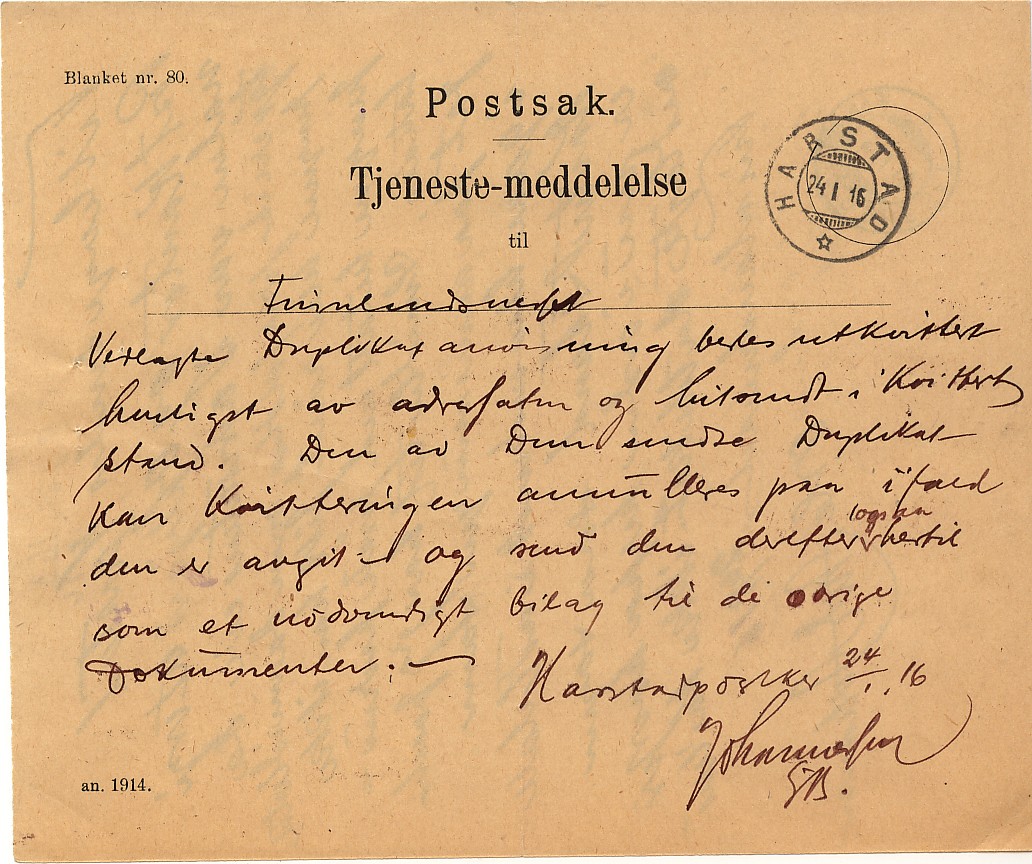 Blanket nr. 80.
Postsak.
Tjeneste-meddelelse
til
HARSTAD
24 I 16
Finnlandsneset
Vedlagte Duplikatanvisning bedes utkvittert
hurtigst av adressaten og hitsendt i Kvittert
stand. Den av Dem sendte Duplikat
kan Kvitteringen annulleres paa ifald
den er avgit – og send den derefter ogsaa hertil
som et nødvendigt bilag til de øvrige
Dokumenter. –
Harstad 24/1. 16
Johannessen
an. 1914.